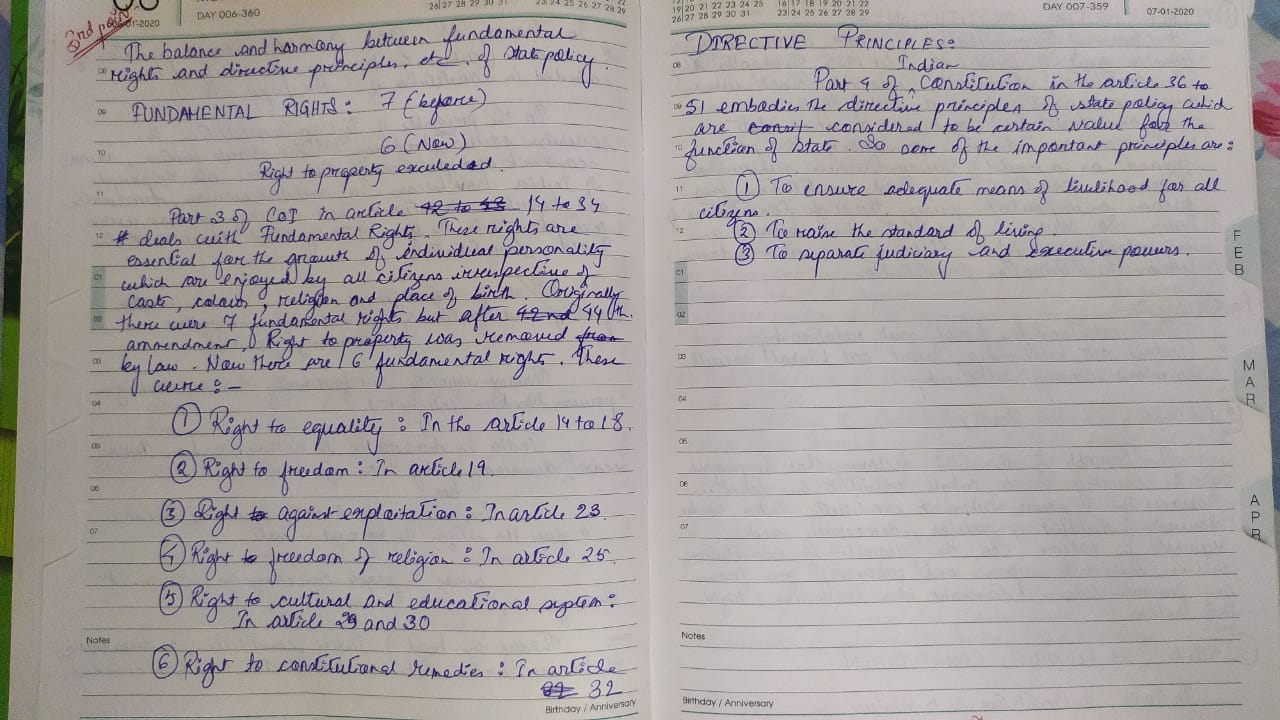 3rd pa
06-01-2020
DAY 006-360
26 27 28 29 30 31
23 24 25 26 27 28 29
The balance and harmony between fundamental
rights and directive principles, etc. of State policy.
FUNDAMENTAL RIGHTS: 7 (before)
6 (Now)
Right to property exculedod.
Part 3 of COI in article 42 to 48 14 to 34
# deals with Fundamental Rights. These rights are
essential for the growth of individual personality
which are enjoyed by all citizens irrespective of
caste, colour, religion and place of birth. Originally
there were 7 fundamental rights but after 42nd 44th.
ammendment, Right to property was removed from
by law. Now there are 6 fundamental rights. These
were :-
① Right to equality : In the article 14 to 18.
② Right to freedom : In article 19.
③ Right to against exploitation : In article 23.
④ Right to freedom of religion : In article 25.
⑤ Right to cultural and educational system :
In article 29 and 30
Notes
⑥ Right to constitutional remedies : In article
32
Birthday / Anniversary
08
09
10
11
12
01
02
03
04
05
06
07
19 20 21 22 23 24 25
26 27 28 29 30 31
16 17 18 19 20 21 22
23 24 25 26 27 28 29
DAY 007-359
07-01-2020
DIRECTIVE PRINCIPLES:
Indian
Part 4 of ^ Constitution in the article 36 to
51 embodies the directive principles of state policy which
are consit considered to be certain value for the
function of State. So some of the important principles are:
① To ensure adequate means of livelihood for all
citizens.
② To raise the standard of living.
③ To separate judiciary and executive powers.
08
09
10
11
12
01
02
03
04
05
06
07
Notes
Birthday / Anniversary
FEB
MAR
APR